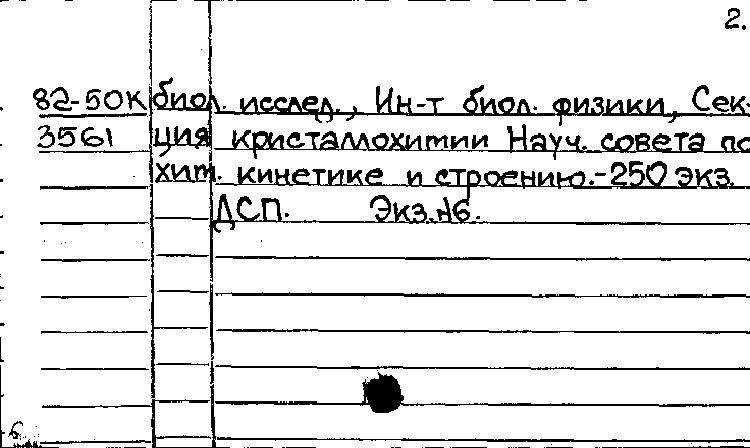 2.
82-50К биол. исслед., Ин-т биол. физики, Сек-
3561 ция кристаллохимии Науч. совета по
хим. кинетике и строению.-250 экз.
ДСП. Экз.№6.